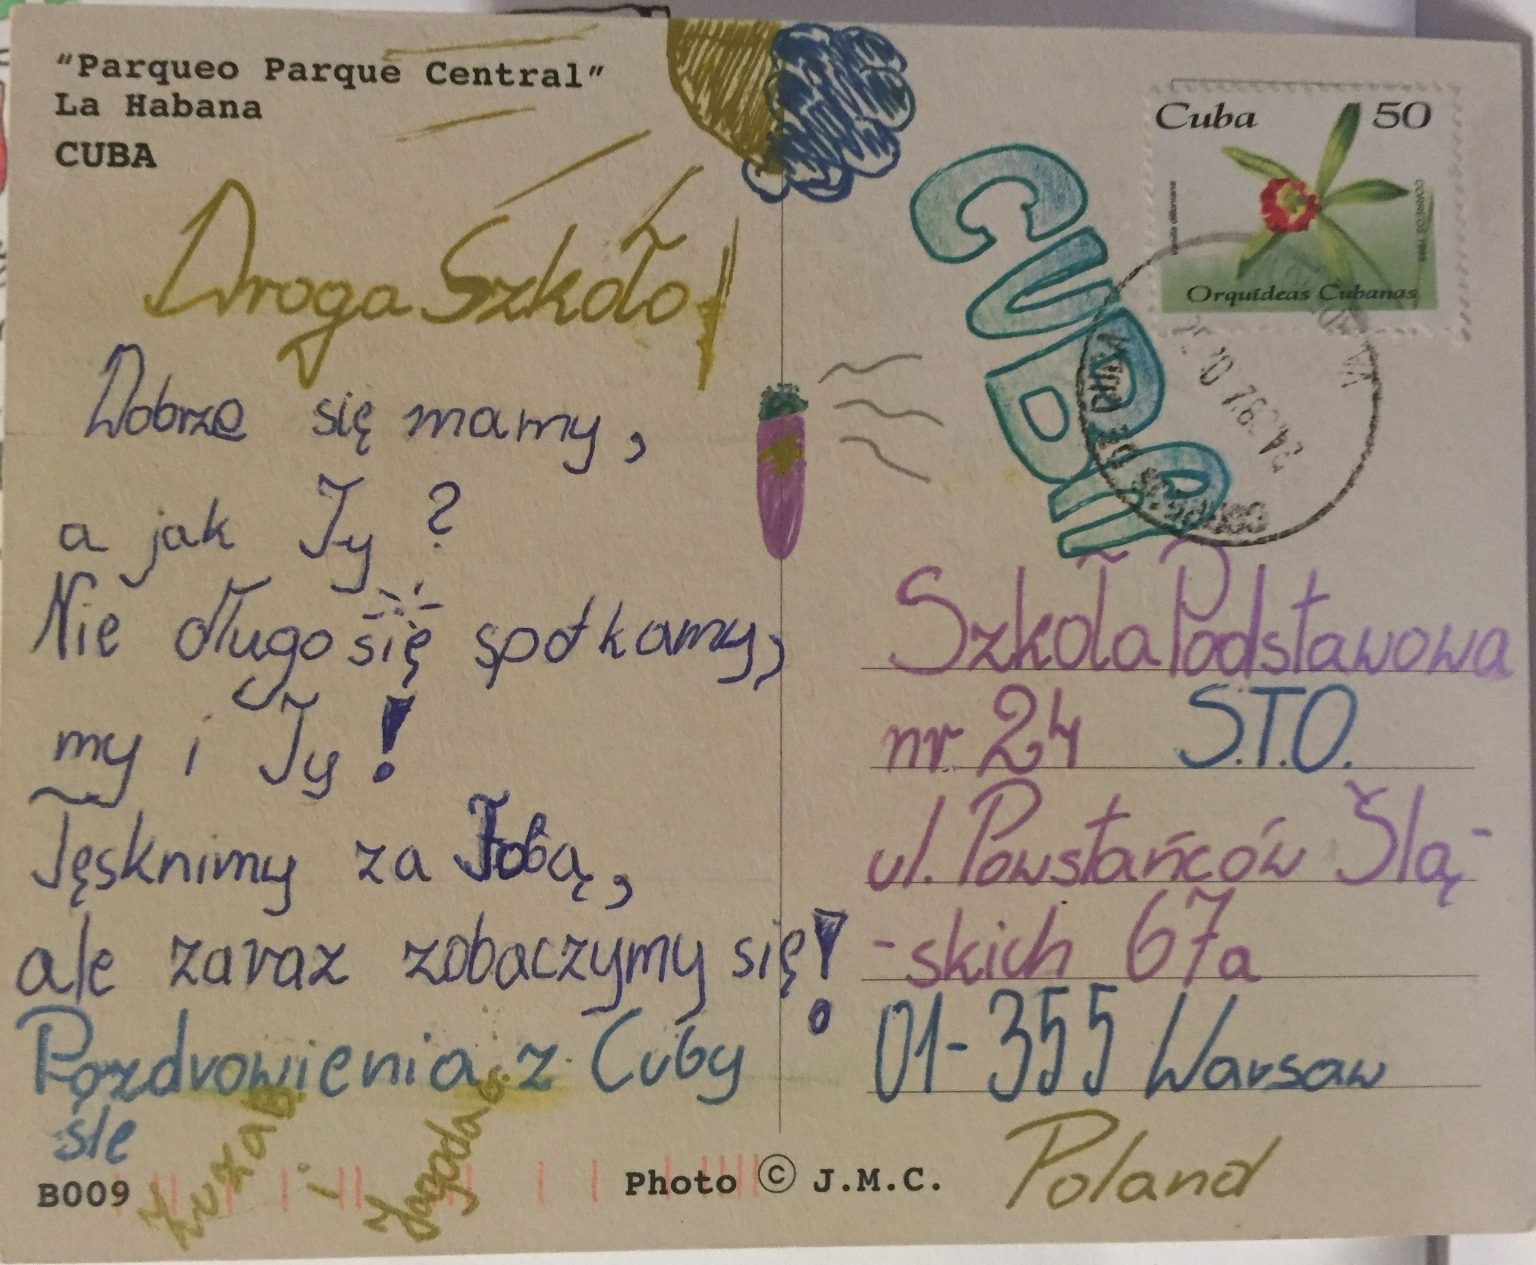 "Parqueo Parque Central"
La Habana
CUBA
Droga Szkoło!
Dobrze się mamy,
a jak Ty?
Nie długo się spotkamy,
my i Ty!
Tęsknimy za Tobą,
ale zaraz zobaczymy się!
Pozdrowienia z Cuby
śle
Zuza
i
Jagoda
B009
Photo © J.M.C.
CUBA
Cuba 50
Orquídeas Cubanas
Szkoła Podstawowa
nr 24 S.T.O.
ul. Powstańców Ślą-
-skich 67a
01-355 Warsaw
Poland